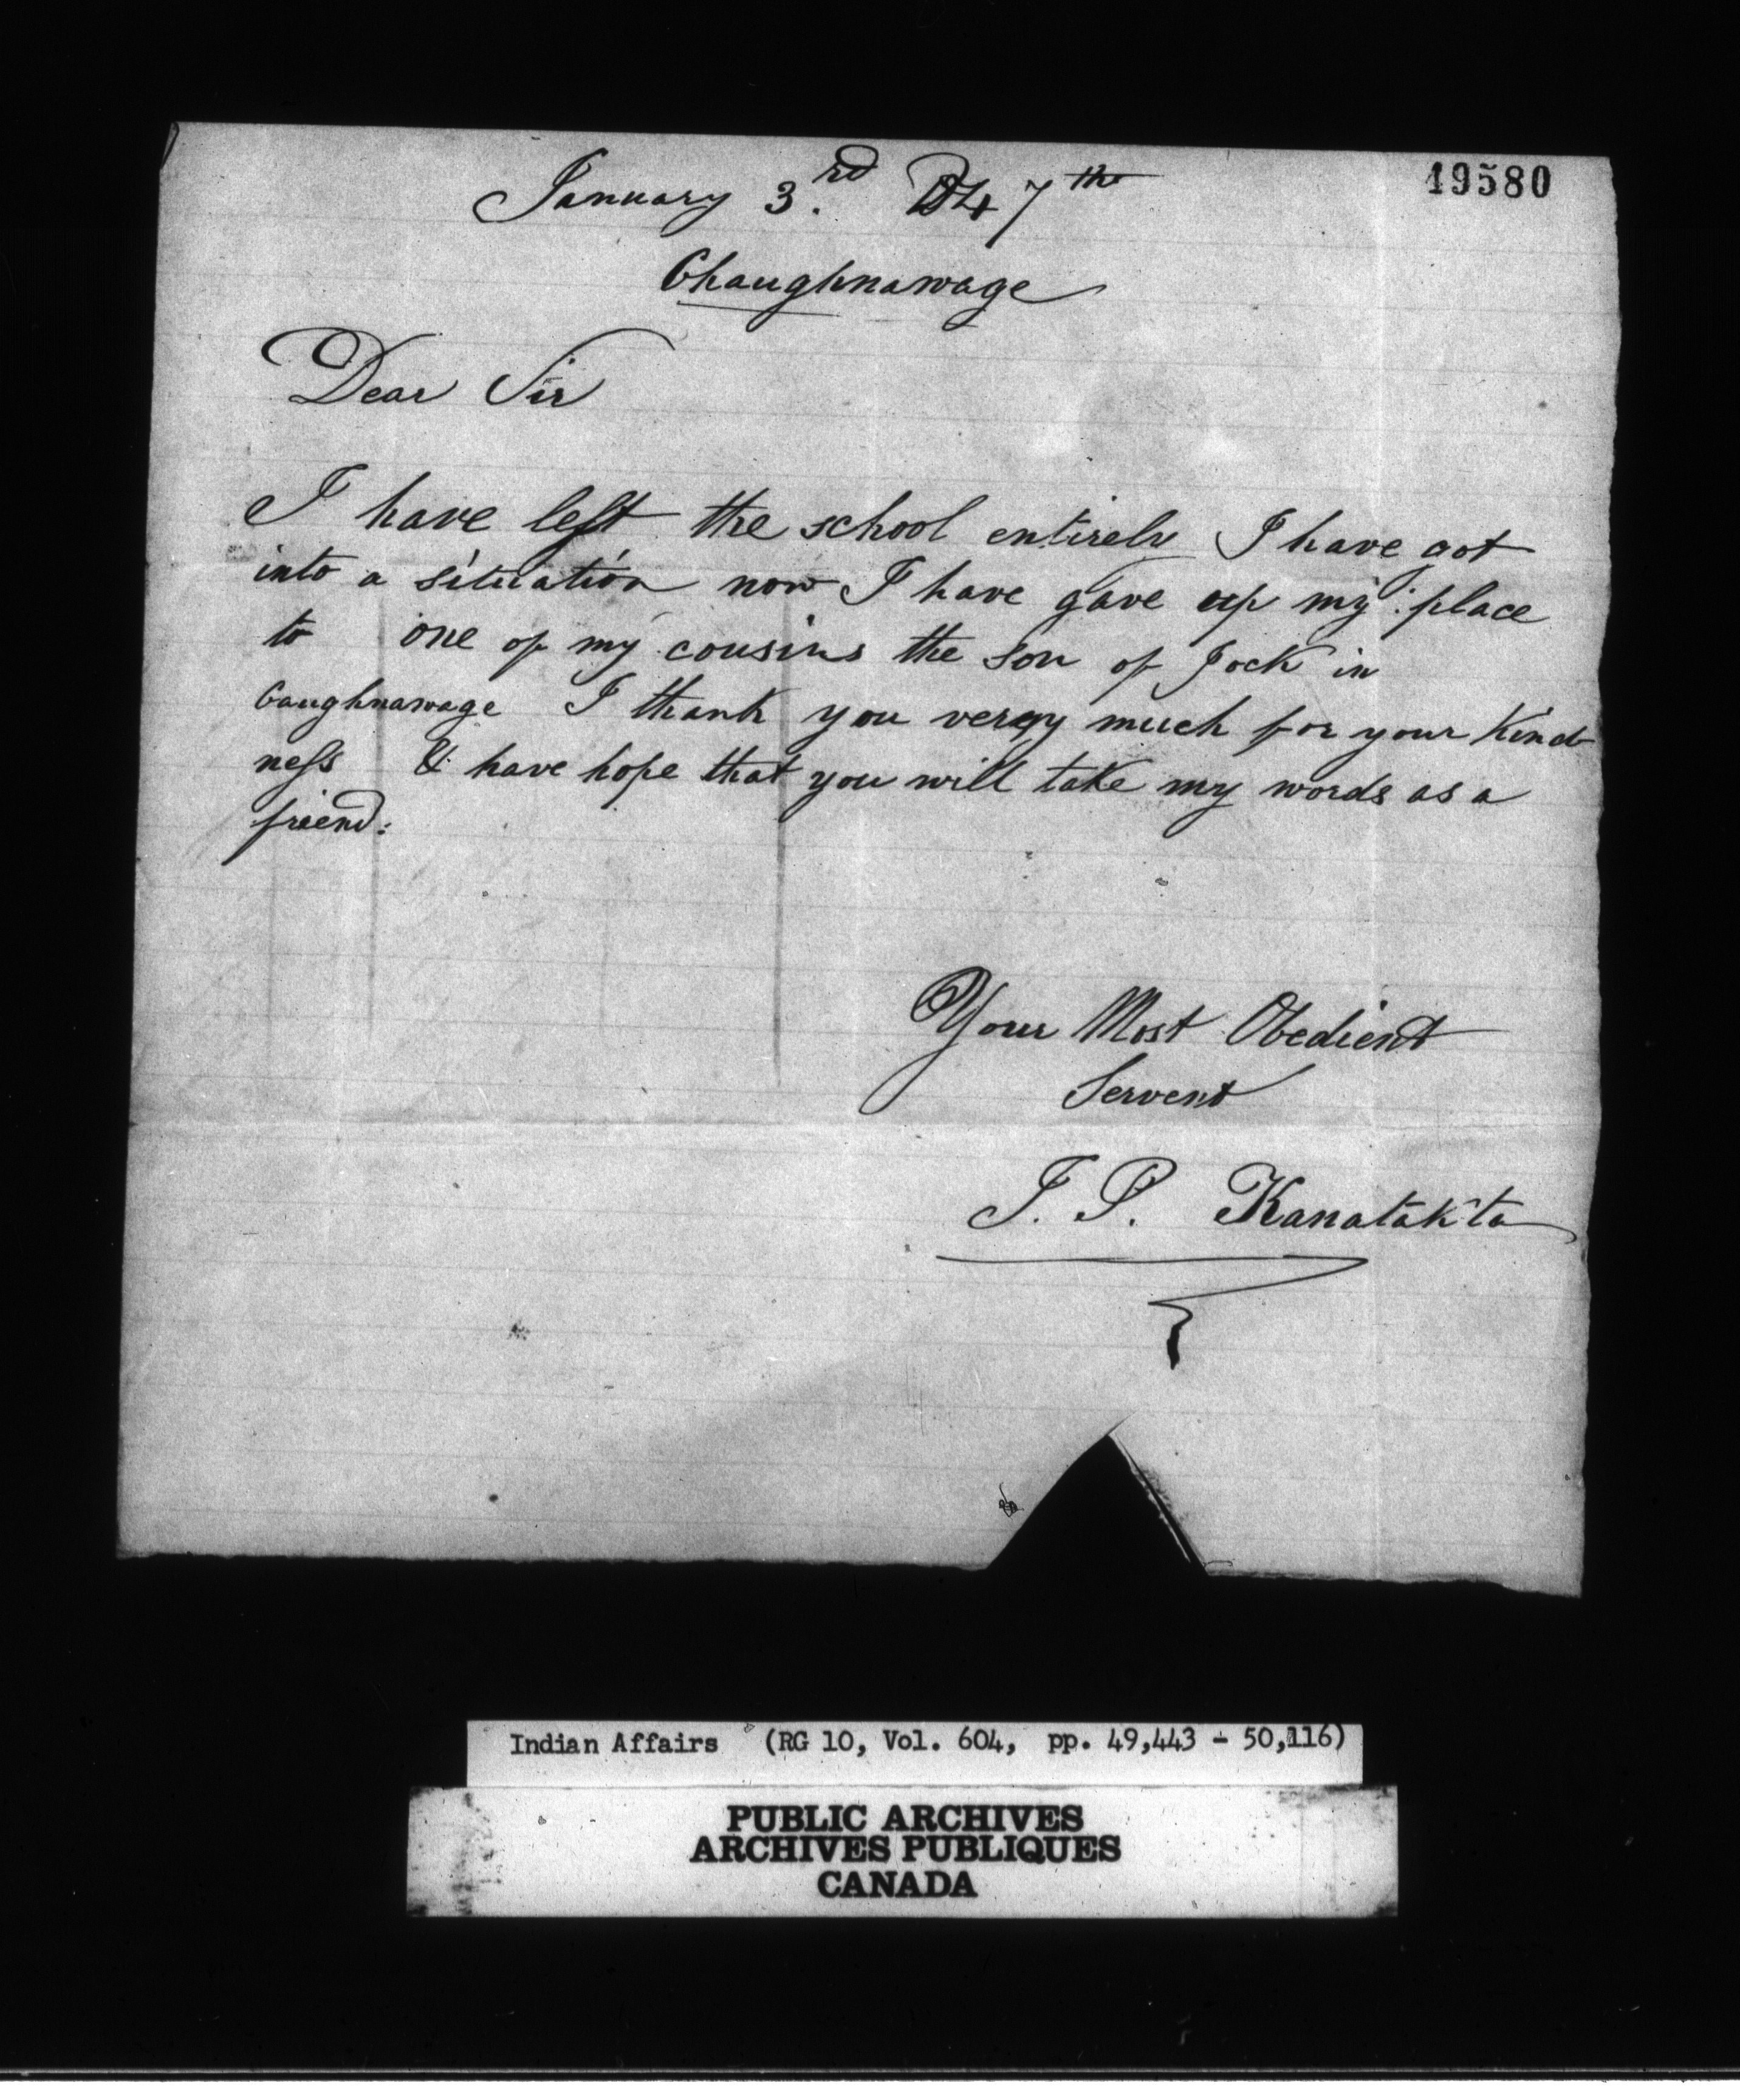 49580
January 3.rd 1847th
Chaughnawage
Dear Sir
I have left the school entirely I have got
into a situation now I have gave up my place
to one of my cousins the son of Jock in
Caughnawage I thank you very much for your Kind
ness & have hope that you will take my words as a
friend:
Your Most Obedient
Servent
J. P. Kanatak'ta
Indian Affairs (RG 10, Vol. 604, pp. 49,443 - 50,116)
PUBLIC ARCHIVES
ARCHIVES PUBLIQUES
CANADA